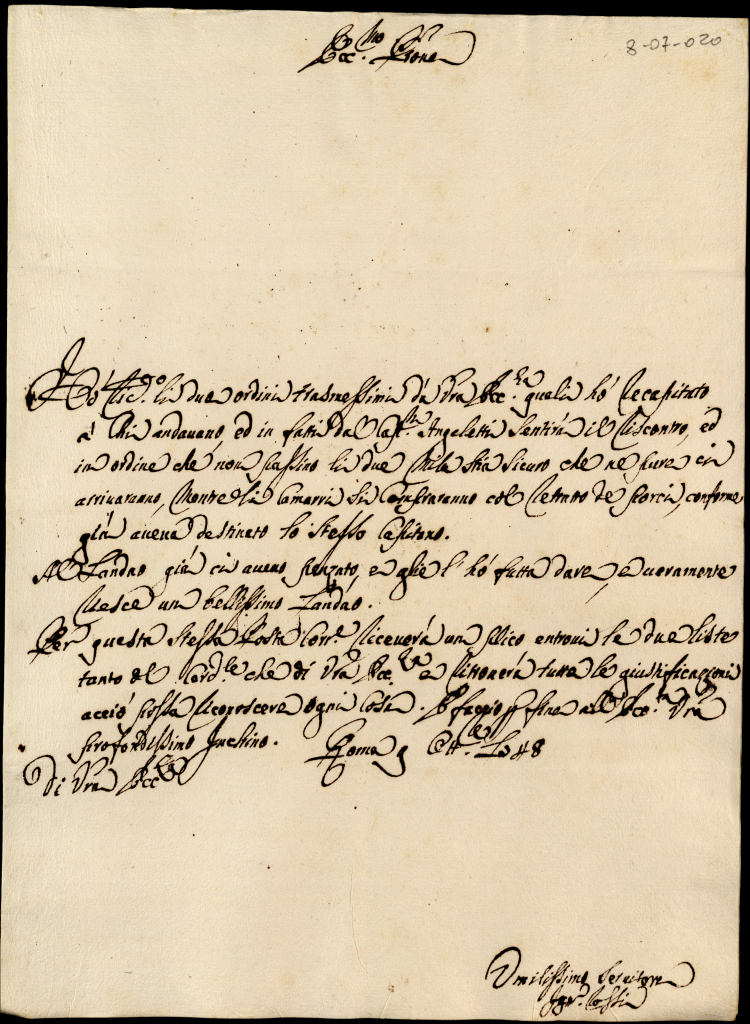 8-07-020
Ecc.mo Prone
Hò ric.to li due ordini trasmessimi dà Vra Ecc.za quali hò recapitato
à chi andavano, ed in fatti dal Cap.no Angeletti sentirà il riscontro, ed
in ordine che non passino li due mila stia sicuro che nè pure ci
arrivaranno, mentre li si col retratto de porci, conforme
già aveva destinato lo stesso Capitano.
Al Landao già ci avevo penzato, e glie l'hò fatta dare, e veramente
riesce un bellissimo Landao.
Per questa stessa Posta Corr.e riceverà un plico entrovi le due liste
tanto del Card.le che di Vra Ecc.za e ritroverà tutte le giustificazioni
acciò possa riconoscere ogni cosa. E faccio p fine all' Ecc.za Vra
profondissimo inchino. Roma 9 Ott.e 1748
Di Vra Ecc.za
Umilissimo Servitore